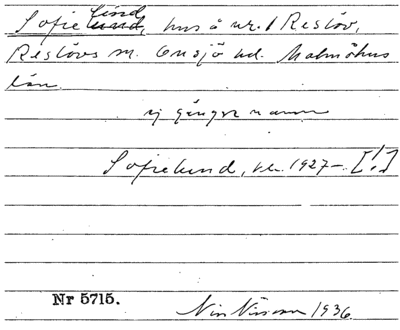 Sofielund, hus å nr. 1 Reslöv,
Reslövs sn. Onsjö hd. Malmöhus
län.
ej gängse namn
Sofielund, kk. 1927-. [!]
Nr 5715.
1936